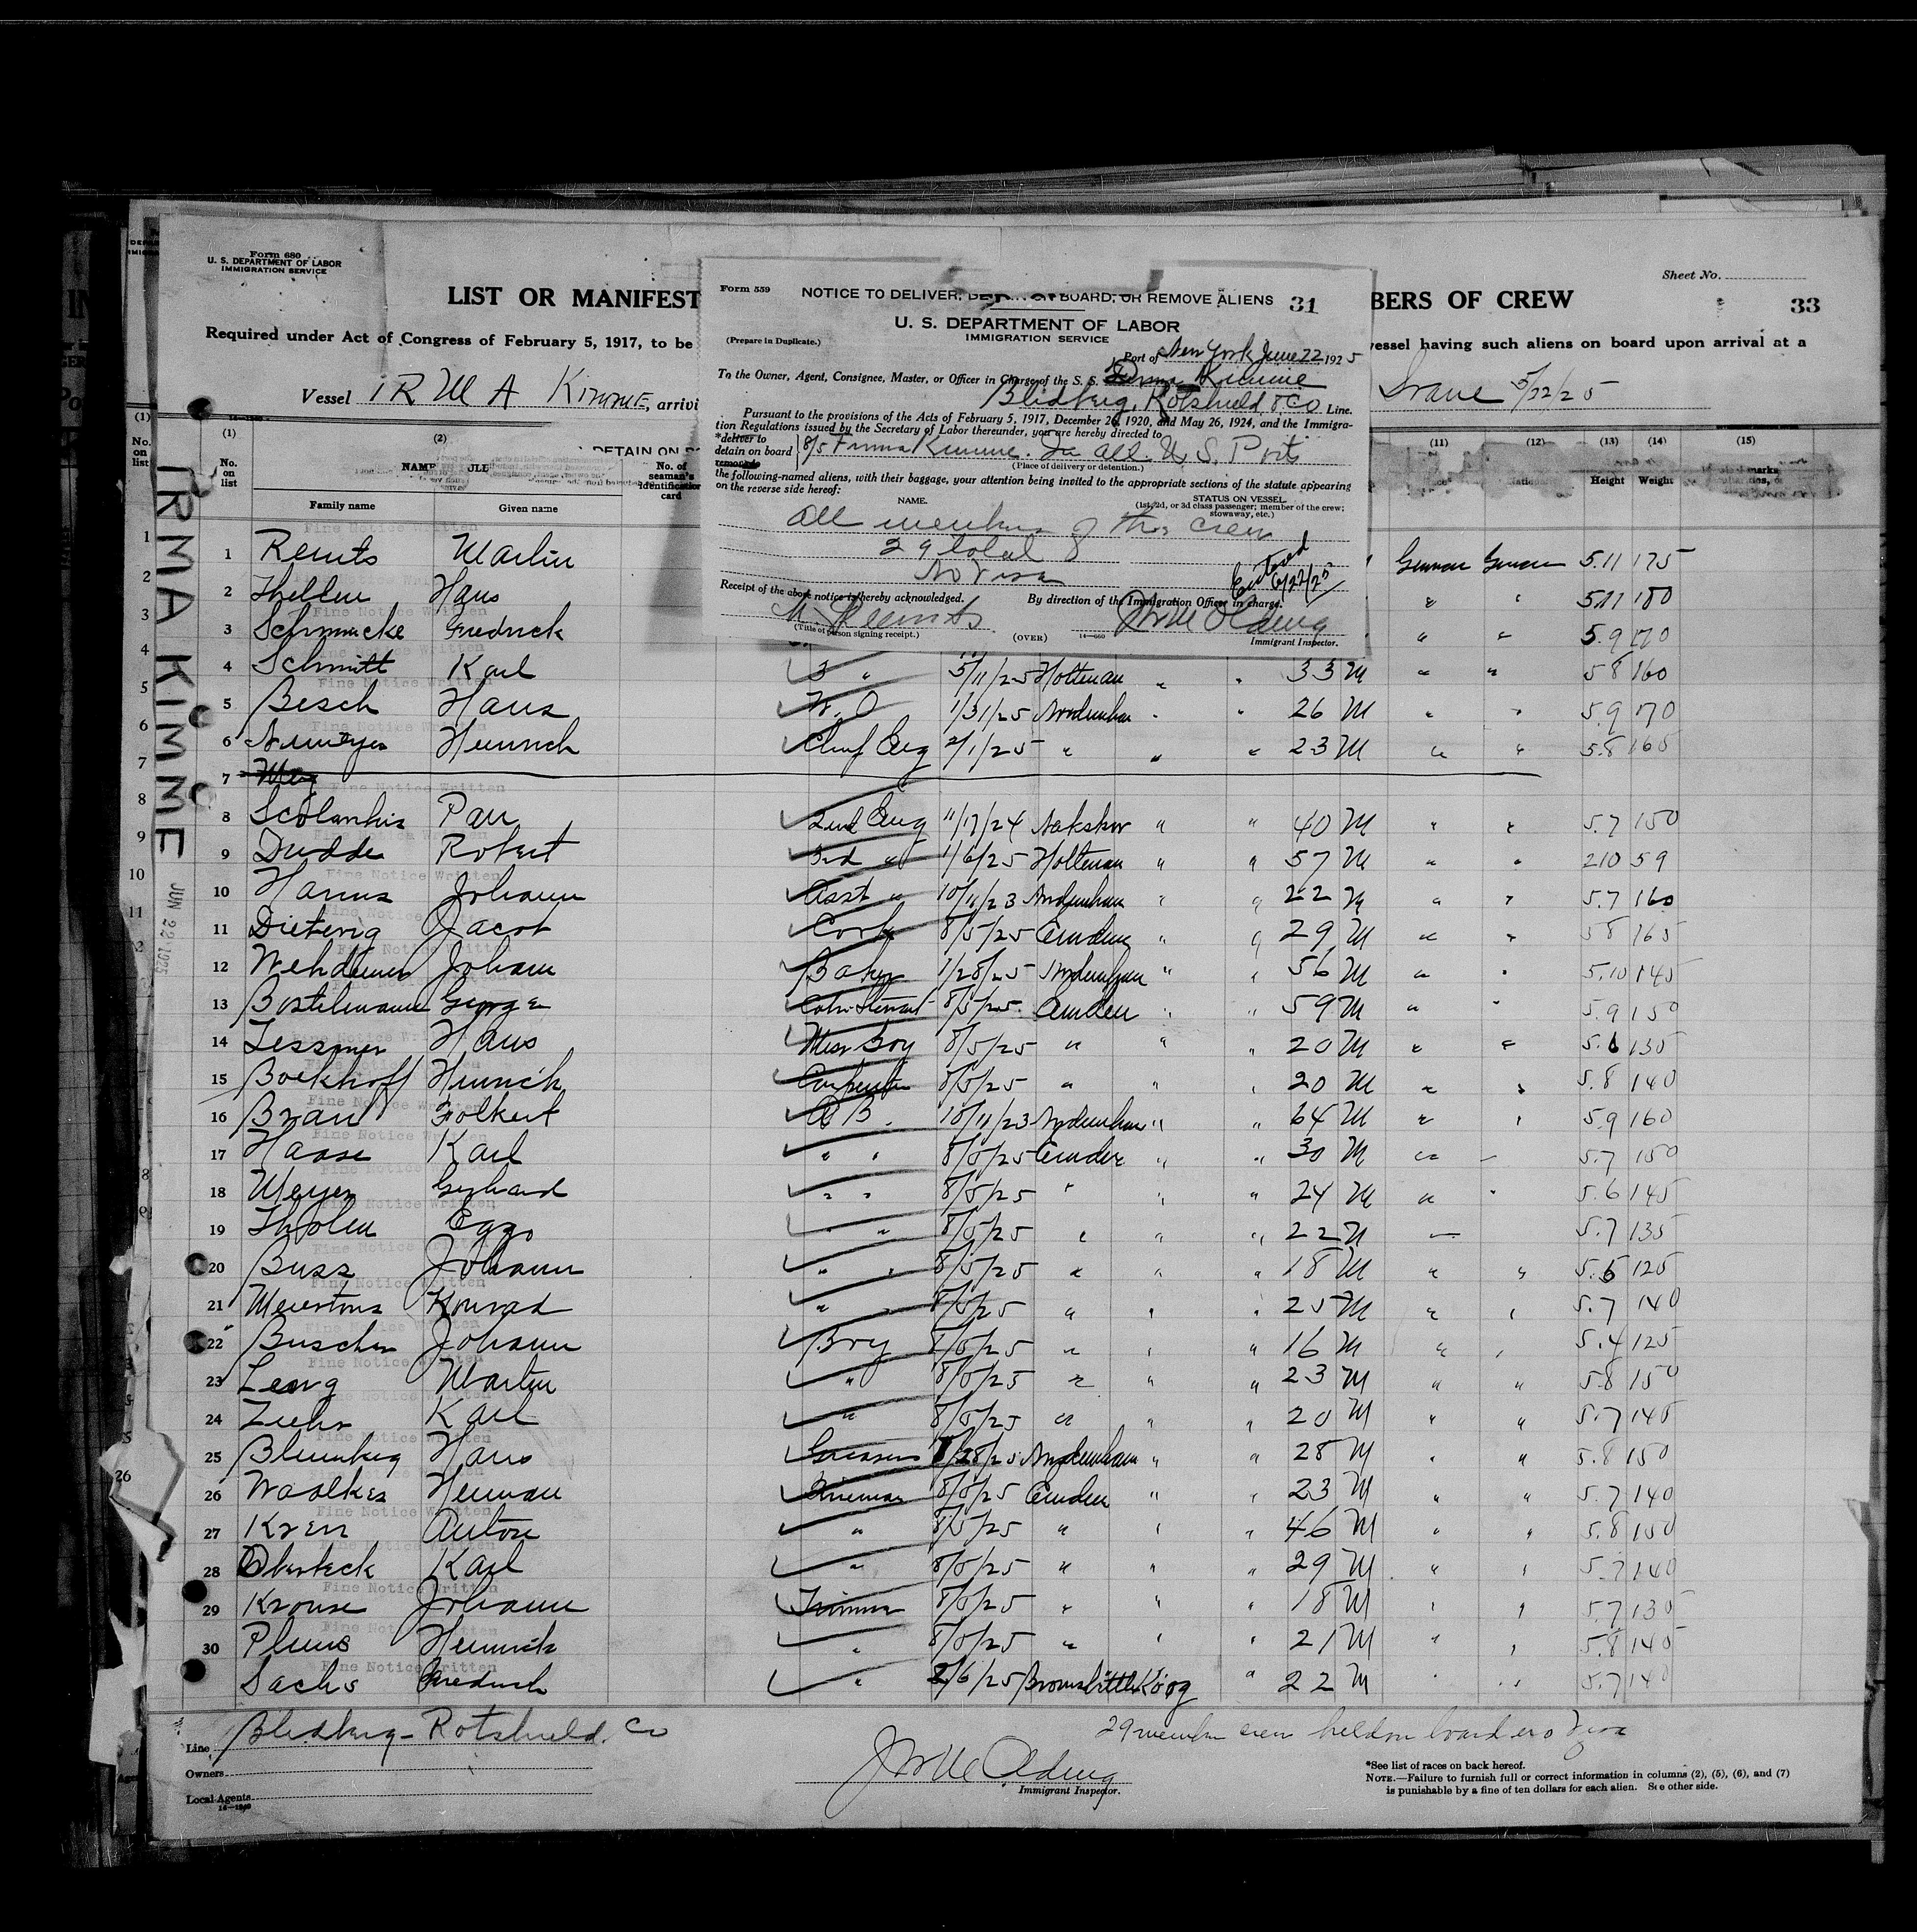 Form 680
U. S. DEPARTMENT OF LABOR
IMMIGRATION SERVICE
Sheet No.
LIST OR MANIFEST
BERS OF CREW
33
Required under Act of Congress of February 5, 1917, to be
vessel having such aliens on board upon arrival at a
Vessel IRMA KIMME, arrivi
5/22/25
Form 559
NOTICE TO DELIVER, BOARD, OR REMOVE ALIENS 31
U. S. DEPARTMENT OF LABOR
IMMIGRATION SERVICE
(Prepare in Duplicate.)
Port of New York June 22, 1925
To the Owner, Agent, Consignee, Master, or Officer in Charge of the S. S. Kimme
Blidberg, Rotshield & Co Line.
Pursuant to the provisions of the Acts of February 5, 1917, December 26, 1920, and May 26, 1924, and the Immigra-
tion Regulations issued by the Secretary of Labor thereunder, you are hereby directed to
*deliver to
detain on board
remove
S/S Irma Kimme. In all U. S. Ports
(Place of delivery or detention.)
the following-named aliens, with their baggage, your attention being invited to the appropriate sections of the statute appearing
on the reverse side hereof:
NAME.
STATUS ON VESSEL
(1st, 2d, or 3d class passenger; member of the crew;
stowaway, etc.)
All members of this crew
29 total
No Visa
Entered
6/22/25
Receipt of the above notice is hereby acknowledged.
By direction of the Immigration Officer in charge.
M. Remits
(Title of person signing receipt.)
(OVER)
14—660
Immigrant Inspector.
(1) (2) (11) (12) (13) (14) (15)
DETAIN ON
No. on list
NAME
Family name
Given name
No. of seaman's identification card
Height
Weight
marks,
IRMA KIMME
JUN 22 1925
Fine Notice Written
1 Remits Martin German German 5.11 175
2 Thellen Hans " " 5.11 180
3 Schmucke Fredrick " " 5.9 170
4 Schmitt Karl 3 " 5/11/25 Holtenau " " 33 M " " 5 8 160
5 Besch Hans W.O 1/31/25 Nordenham " " 26 M " " 5.9 170
6 Niemeyer Heinrich Chief Eng 2/1/25 " " " 23 M " " 5.8 165
7 Mey
8 Pau 2nd Eng 11/17/24 Nakskov " " 40 M " " 5.7 150
9 Dudde Robert 3rd " 1/6/25 Holtenau " " 57 M " " 210 59
10 Harms Johann Asst " 10/11/23 Nordenham " " 22 M " " 5.7 160
11 Dieterig Jacob Cook 8/5/25 Emden " " 29 M " " 5 8 165
12 Johann Baker 1/28/25 Nordenham " " 56 M " " 5.10 145
13 Bostelmann George 8/5/25 Emden " " 59 M " " 5.9 150
14 Lessmer Hans Mess Boy 8/5/25 " " " 20 M " " 5.6 130
15 Boekhoff Hinrich Carpenter 8/5/25 " " " 20 M " " 5.8 140
16 Braun Folkert A B. 10/11/23 Nordenham " " 64 M " " 5.9 160
17 Haase Karl " " 8/5/25 Emden " " 30 M " " 5.7 150
18 Meyer Gerhard " " 8/5/25 " " " 24 M " " 5.6 145
19 Tholen Eggo " " 8/5/25 " " " 22 M — 5.7 135
20 Buss Johann " " 8/5/25 " " " 18 M " " 5.6 125
21 Meertons Konrad " " 8/5/25 " " " 25 M " " 5.7 140
22 Buscher Johann Boy 8/5/25 " " " 16 M " " 5.4 125
23 Martin " 8/5/25 " " " 23 M " " 5.8 150
24 Ziehr Karl " 8/5/25 " " " 20 M " " 5.7 145
25 Blumberg Hans 1/28/25 Nordenham " " 28 M " " 5.8 150
26 Woolkes Herman Fireman 8/5/25 Emden " " 23 M " " 5.7 140
27 Kren Anton " 8/5/25 " " " 46 M " " 5.8 150
28 Oberbeck Karl " 8/5/25 " " " 29 M " " 5.7 140
29 Krouse Johann Trimmer 8/5/25 " " " 18 M " " 5.7 130
30 Plums Heinrich " 8/5/25 " " " 21 M " " 5.8 145
Sachs Fredrich " 2/6/25 Brownsbüttel Koog " 22 M " " 5.7 140
Line Blidberg - Rotshield. Co
29 member crew held on board no visa
Owners
Local Agents
Immigrant Inspector.
*See list of races on back hereof.
NOTE.—Failure to furnish full or correct information in columns (2), (5), (6), and (7)
is punishable by a fine of ten dollars for each alien. See other side.